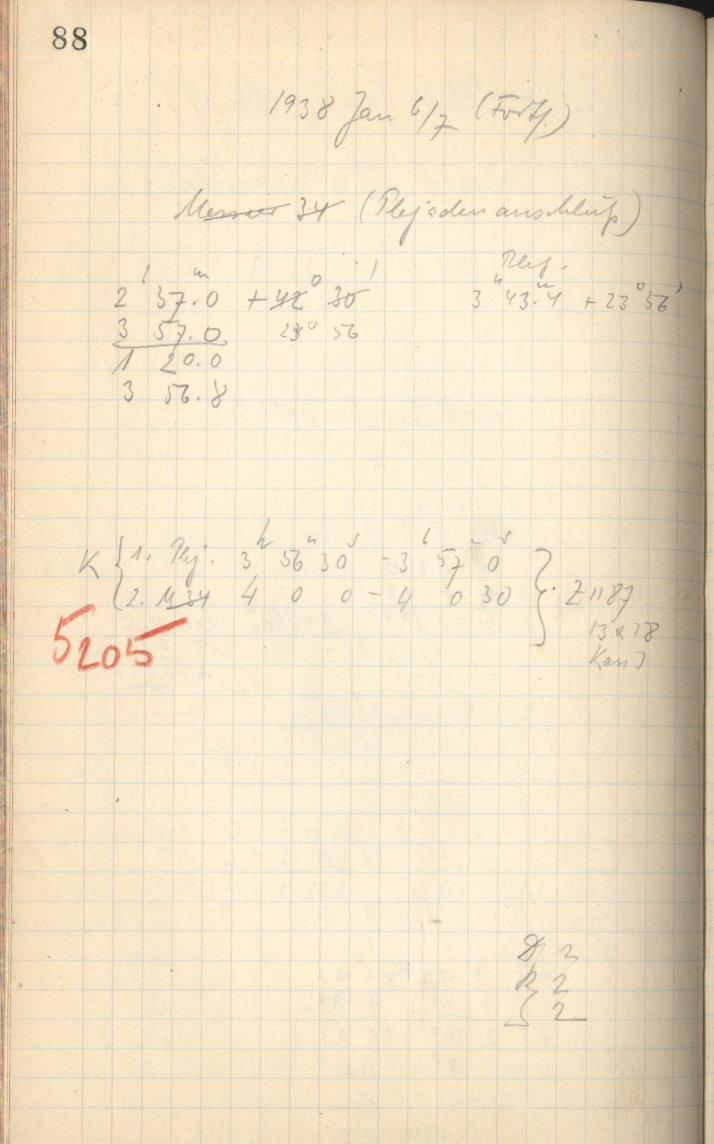 88
1938 Jan 6/7 (Forts.)
Messier 34 (Plejadenanschluß)
Plej.
2h 37m.0 +42° 30' 3h 43m.4 +23° 56'
3 57.0 23° 56
1 20.0
3 56.8
K { 1. Plej. 3h 56m 30s - 3h 57m 0s
2. M34 4 0 0 - 4 0 30 } Z 1187
13 x 18
5205
D 2
R 2
S 2